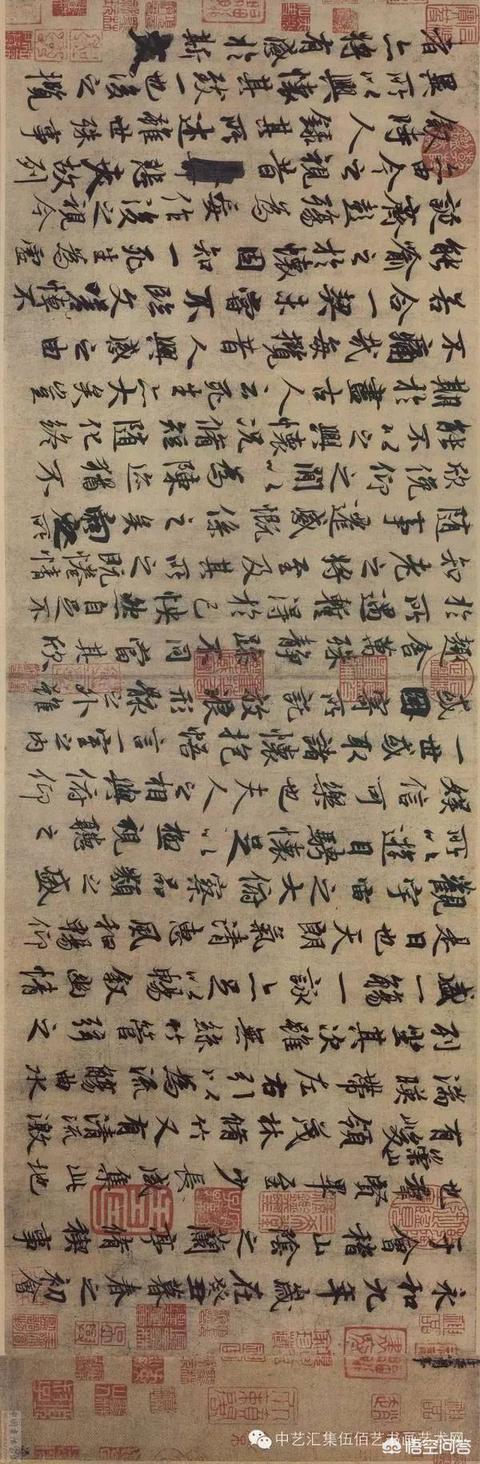 永和九年歲在癸丑暮春之初會
于會稽山陰之蘭亭脩稧事
也羣賢畢至少長咸集此地
有崇山峻領茂林脩竹又有清流激
湍暎帶左右引以為流觴曲水
列坐其次雖無絲竹管弦之
盛一觴一詠亦足以暢敘幽情
是日也天朗氣清惠風和暢仰
觀宇宙之大俯察品類之盛
所以遊目騁懷足以極視聽之
娛信可樂也夫人之相與俯仰
一世或取諸懷抱悟言一室之內
或因寄所託放浪形骸之外雖
趣舍萬殊靜躁不同當其欣
於所遇暫得於己怏然自足不
知老之將至及其所之既惓情
隨事遷感慨係之矣向之所
欣俛仰之閒以為陳迹猶不
能不以之興懷況脩短隨化終
期於盡古人云死生亦大矣豈
不痛哉每攬昔人興感之由
若合一契未嘗不臨文嗟悼不
能喻之於懷固知一死生為虛
誕齊彭殤為妄作後之視今
亦由今之視昔悲夫故列
敘時人錄其所述雖世殊事
異所以興懷其致一也後之攬
者亦將有感於斯文
中艺汇集伍佰艺书画艺术网
悟空问答